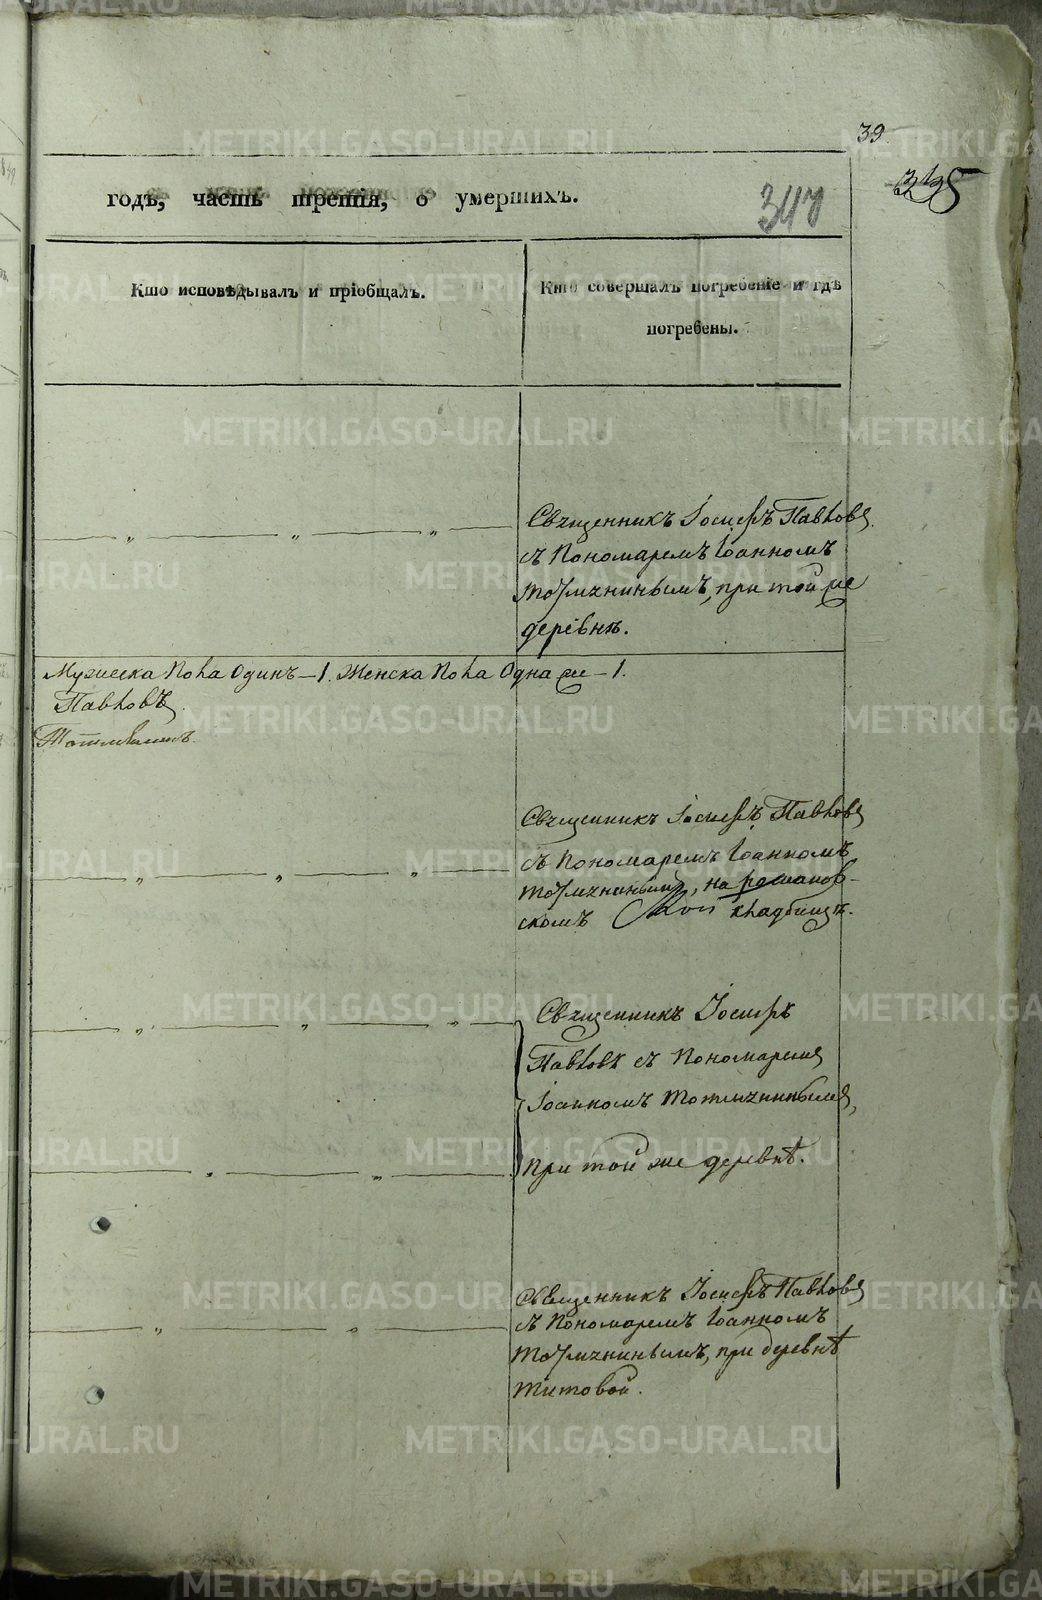 39
345
340
годъ, часть третія, о умершихъ.
Кто исповѣдывалъ и пріобщалъ.
Кто совершалъ погребеніе и гдѣ
погребены.
Священникъ Іосифъ Павловъ
съ Пономаремъ Іоанномъ
при той же
деревнѣ.
Мужеска пола Одинъ – 1. Женска пола Одна же – 1.
Павловъ.
Священникъ Іосифъ Павловъ
съ Пономаремъ Іоанномъ
на романов-
скомъ кладбищѣ.
Священникъ Іосифъ
Павловъ съ Пономаремъ
Іоанномъ
при той же деревнѣ.
Священникъ Іосифъ Павловъ
съ Пономаремъ Іоанномъ
при деревнѣ
Титовой.
METRIKI.GASO-URAL.RU